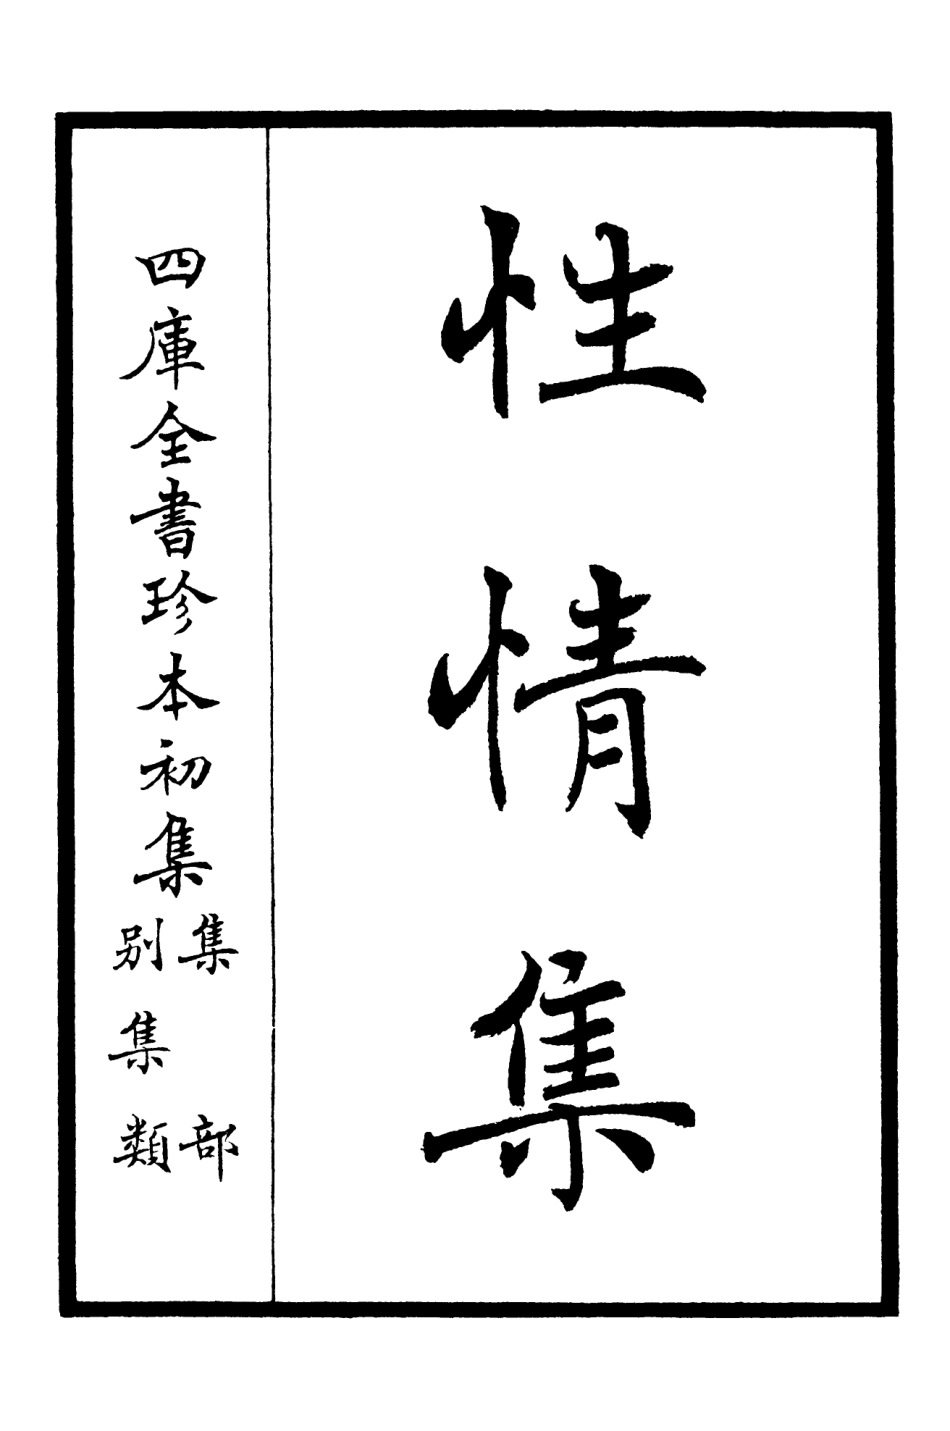 性情集
四庫全書珍本初集
集部
別集類